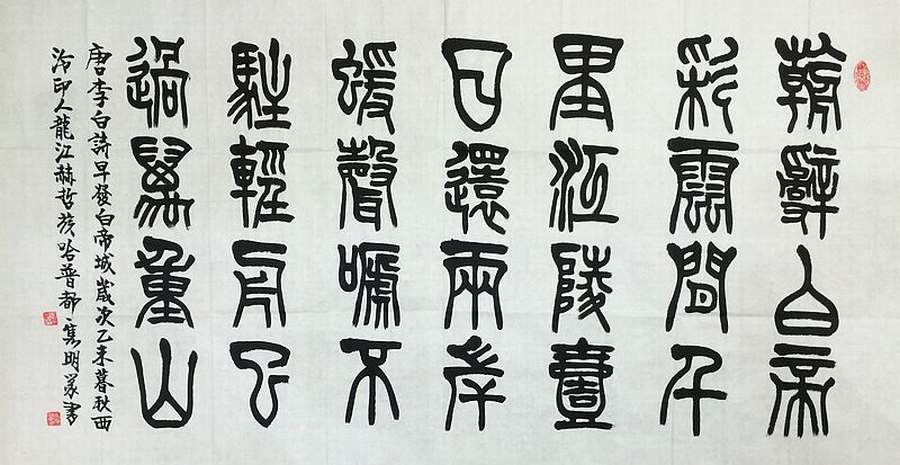 朝辭白帝
彩雲間千
里江陵壹
日還兩岸
猿聲啼不
駐輕舟已
過萬重山
唐李白詩早發白帝城歲次乙未暮秋西
泠印人龍江赫哲族哈普都隽明篆書